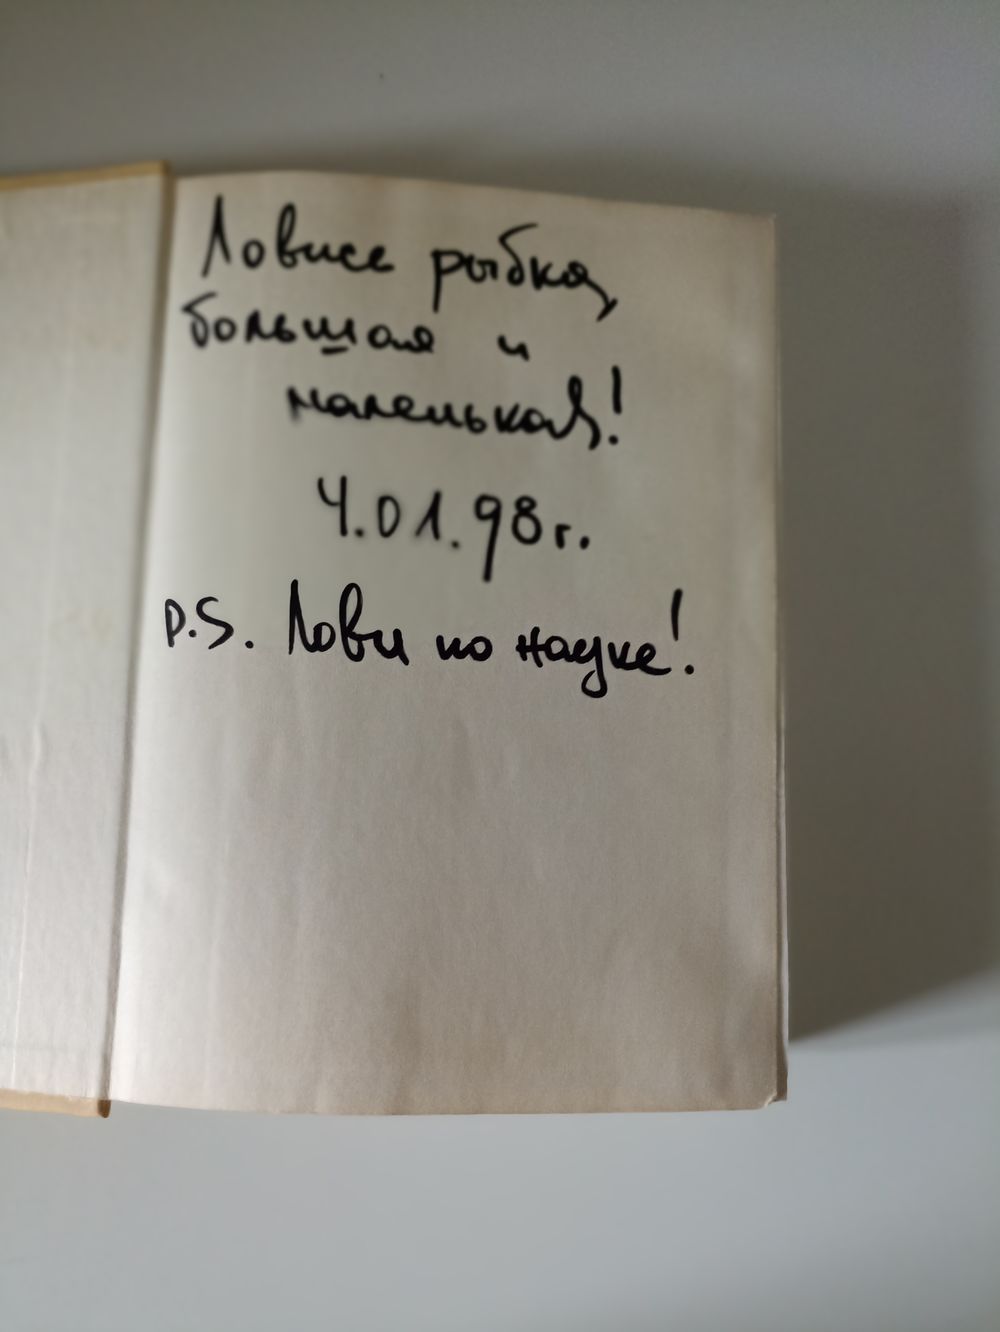 Ловисе рыбка,
большая и
маленькая!
4.01.98г.
P.S. Лови по науке!